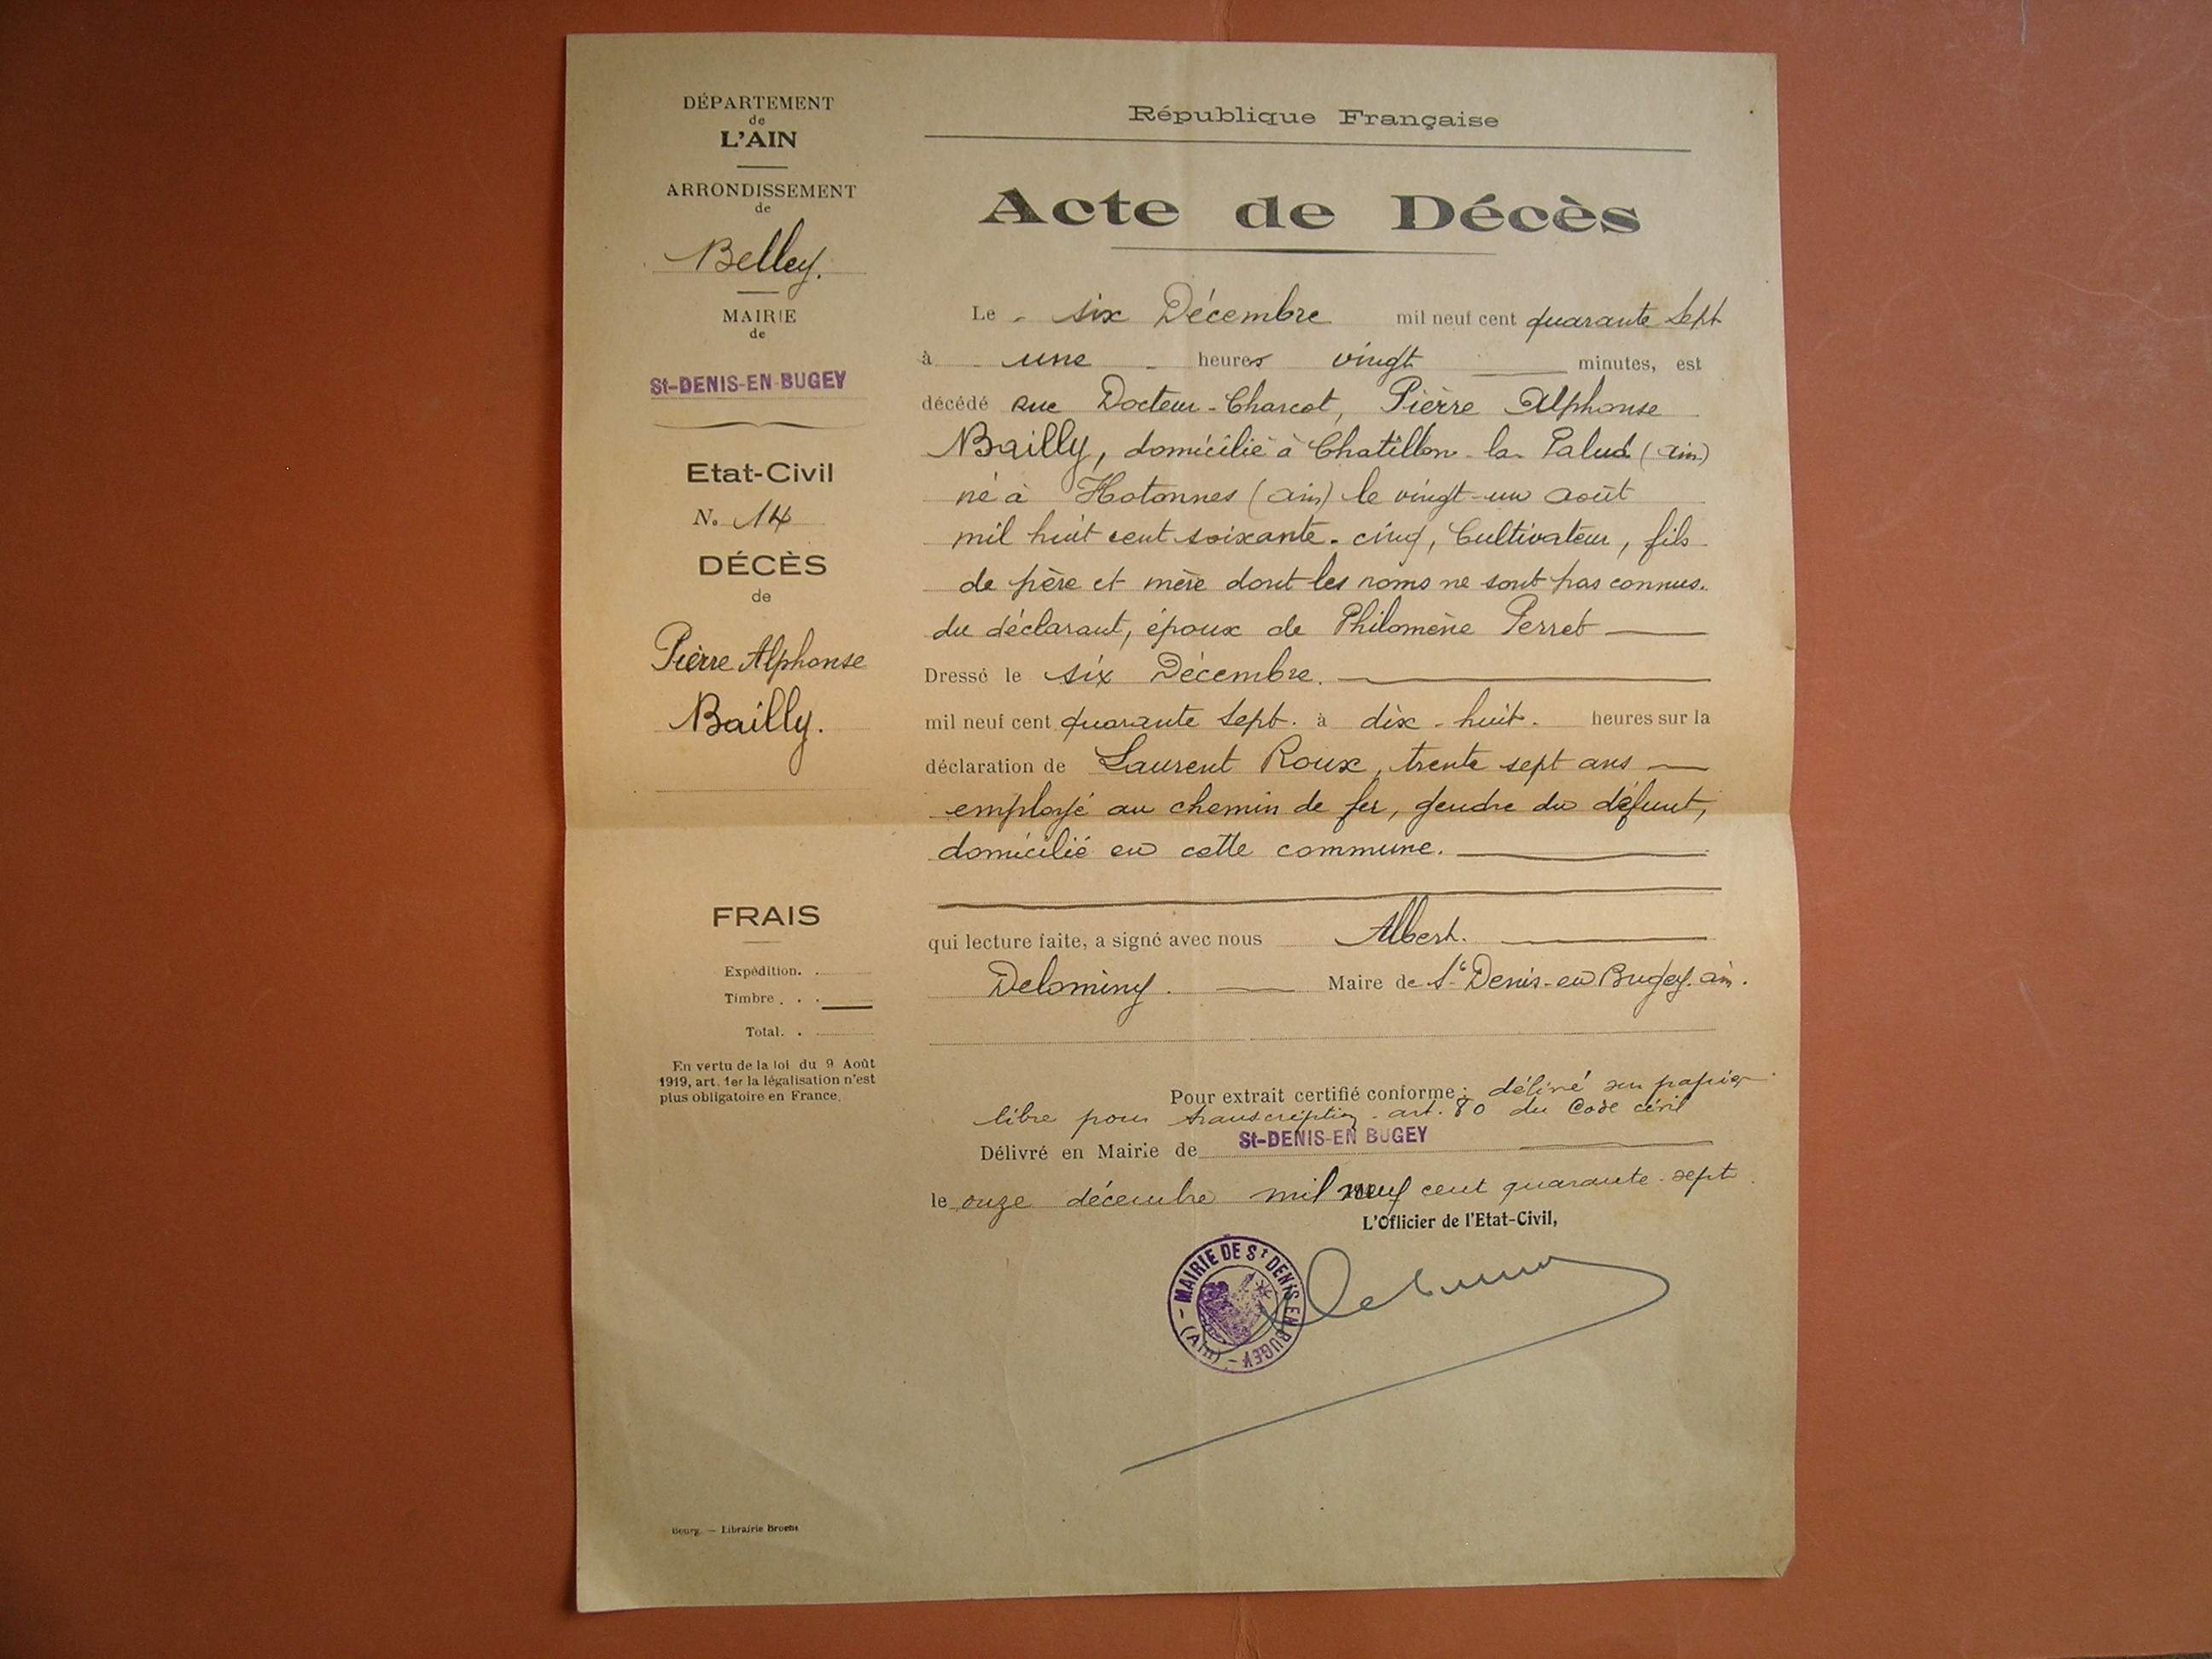 DÉPARTEMENT
de
L'AIN
ARRONDISSEMENT
de
Belley.
MAIRIE
de
St-DENIS-EN-BUGEY
Etat-Civil
N. 14
DÉCÈS
de
Pièrre Alphonse
Bailly.
FRAIS
Expédition. .
Timbre . . .
Total. .
En vertu de la loi du 9 Août
1919, art. 1er la légalisation n'est
plus obligatoire en France.
République Française
Acte de Décès
Le six Décembre mil neuf cent quarante Sept
à une heures vingt minutes, est
décédé Rue Docteur-Charcot, Pièrre Alphonse
Bailly, domicilié à Chatillon-la-Palud (ain)
né à Hotonnes (ain) le vingt-un août
mil huit cent soixante-cinq, Cultivateur, fils
de père et mère dont les noms ne sont pas connus.
du déclarant, époux de Philomène Perret
Dressé le six Décembre.
mil neuf cent quarante Sept. à dix-huit. heures sur la
déclaration de Laurent Roux, trente sept ans
employé au chemin de fer, gendre du défunt,
domicilié en cette commune.
qui lecture faite, a signé avec nous Albert.
Delominy. Maire de St-Denis-en Bugey. ain.
Pour extrait certifié conforme : délivré sur papier
libre pour transcription - art. 80 du Code civil
Délivré en Mairie de St-DENIS-EN BUGEY
le onze décembre mil neuf cent quarante-sept
L'Officier de l'Etat-Civil,
MAIRIE DE St DENIS EN BUGEY
- (Ain) -
Bourg. — Librairie